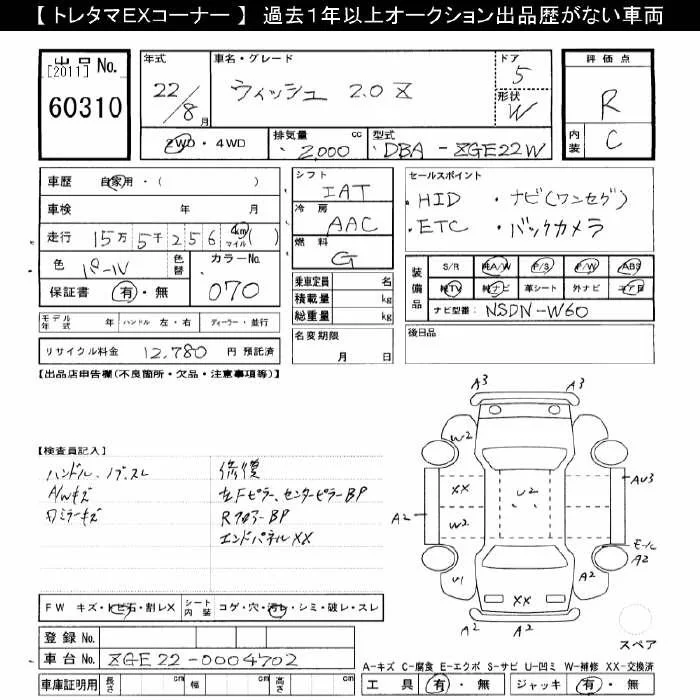 【 トレタマEXコーナー 】 過去1年以上オークション出品歴がない車両
出品 No.
[2011]
60310
年式
22/8月
車名・グレード
ウィッシュ 2.0 Z
ドア
5
形状
W
評価点
R
内装
C
2WD・4WD
排気量 cc
2,000
型式
DBA - ZGE22W
車歴 自家用・( )
車検 年 月
走行 15万5千256 km マイル ( )
色 パール 色替 カラーNo. 070
保証書 有・無
モデル年式 年 ハンドル 左・右 ディーラー・並行
リサイクル料金 12,780 円 預託済
シフト
IAT
冷房
AAC
燃料
G
乗車定員 名
積載量 kg
総重量 kg
名変期限
月 日
セールスポイント
・HID ・ナビ(ワンセグ)
・ETC ・バックカメラ
装備品
S/R 純A/W P/S P/W ABS
純TV 純ナビ 革シート 外ナビ エア日
ナビ型番: NSDN-W60
後日品
【出品店申告欄(不良箇所・欠品・注意事項等)】
【検査員記入】
ハンドル、ノブ、スレ
A/Wキズ
修復
左Fピラー、センターピラーBP
RフロアーBP
エンドパネルXX
A3 A3
W2
XX
U2
W2
A2
AU3
モール
A2
U1
XX
A2
A2 A2
スペア
FW キズ・トビ石・割レX シート内装 コゲ・穴・汚レ・シミ・破レ・スレ
登録 No.
車台 No. ZGE22-0004702
車庫証明用 長さ cm 幅 cm 高さ cm
A-キズ C-腐食 E-エクボ S-サビ U-凹ミ W-補修 XX-交換済
工具 有・無 ジャッキ 有・無